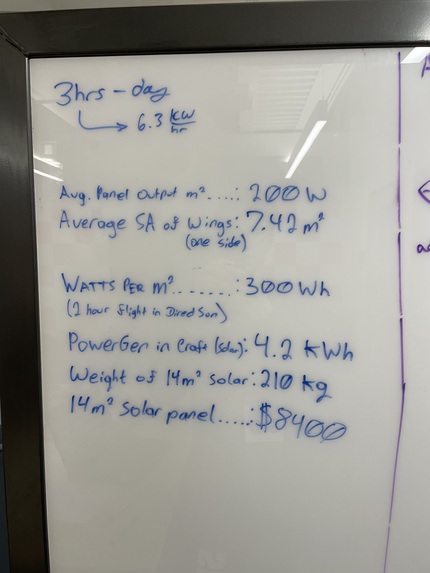 3hrs - day
↳ 6.3 kw/hr
Avg. Panel Output m²....: 200 W
Average SA of Wings: 7.42 m²
(one side)
WATTS PER m².......: 300 Wh
(2 hour flight in Direct Sun)
Power Gen in Craft (solar): 4.2 kWh
Weight of 14m² solar: 210 kg
14m² solar panel.....: $8400